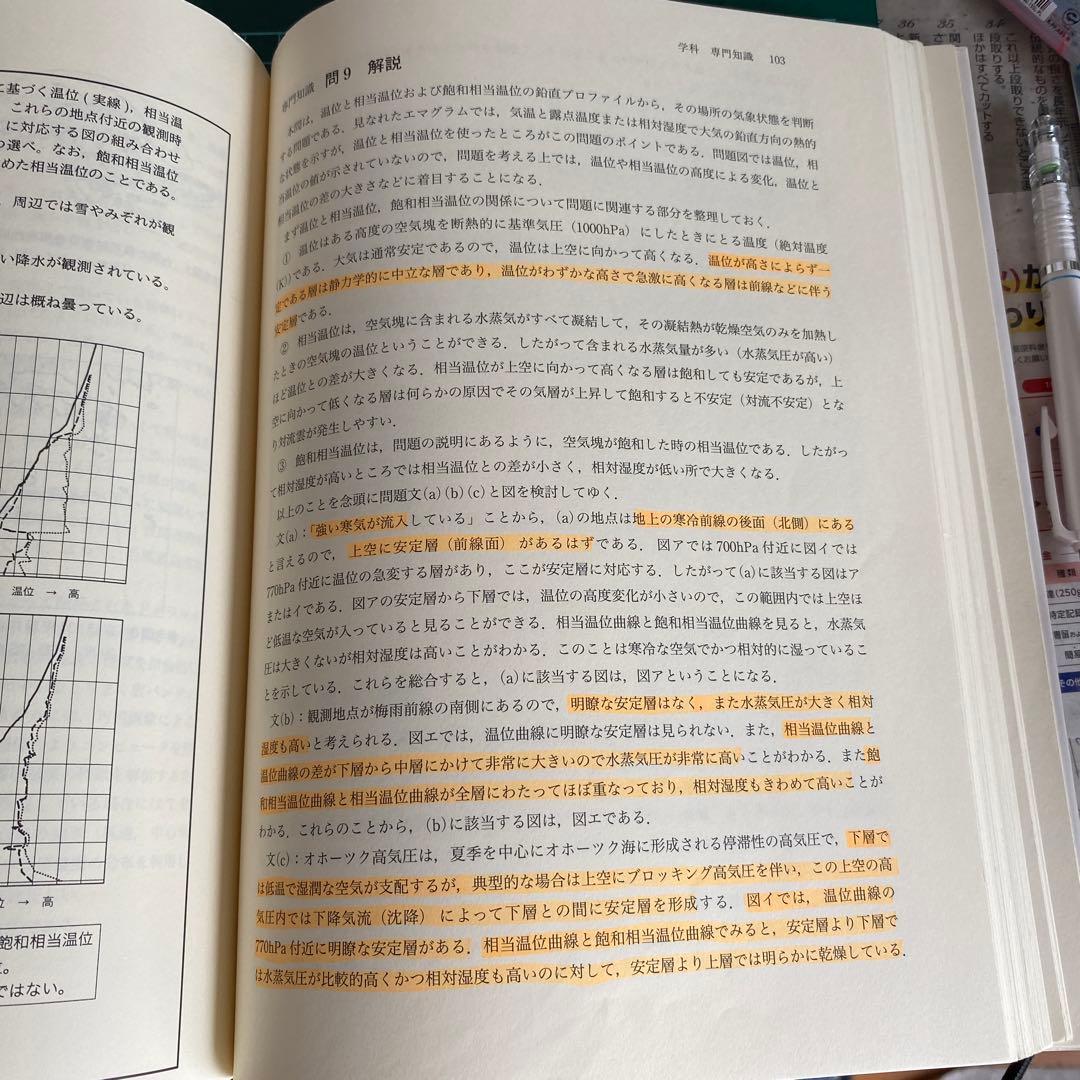 に基づく温位(実線)，相当温
これらの地点付近の観測時
に対応する図の組み合わせ
選べ。なお，飽和相当温位
めた相当温位のことである。
周辺では雪やみぞれが観
い降水が観測されている。
辺は概ね曇っている。
温位 → 高
位 → 高
飽和相当温位
ではない。
学科 専門知識 103
専門知識 問9 解説
本問は，温位と相当温位および飽和相当温位の鉛直プロファイルから，その場所の気象状態を判断
する問題である．見なれたエマグラムでは，気温と露点温度または相対湿度で大気の鉛直方向の熱的
な状態を示すが，温位と相当温位を使ったところがこの問題のポイントである．問題図では温位，相
当温位の値が示されていないので，問題を考える上では，温位や相当温位の高度による変化，温位と
相当温位の差の大きさなどに着目することになる．
まず温位と相当温位，飽和相当温位の関係について問題に関連する部分を整理しておく．
① 温位はある高度の空気塊を断熱的に基準気圧（1000hPa）にしたときにとる温度（絶対温度
(K)）である．大気は通常安定であるので，温位は上空に向かって高くなる．温位が高さによらず一
定である層は静力学的に中立な層であり，温位がわずかな高さで急激に高くなる層は前線などに伴う
安定層である．
② 相当温位は，空気塊に含まれる水蒸気がすべて凝結して，その凝結熱が乾燥空気のみを加熱し
たときの空気塊の温位ということができる．したがって含まれる水蒸気量が多い（水蒸気圧が高い）
ほど温位との差が大きくなる．相当温位が上空に向かって高くなる層は飽和しても安定であるが，上
空に向かって低くなる層は何らかの原因でその気層が上昇して飽和すると不安定（対流不安定）とな
り対流雲が発生しやすい．
③ 飽和相当温位は，問題の説明にあるように，空気塊が飽和した時の相当温位である．したがっ
て相対湿度が高いところでは相当温位との差が小さく，相対湿度が低い所で大きくなる．
以上のことを念頭に問題文(a)(b)(c)と図を検討してゆく．
文(a)：「強い寒気が流入している」ことから，(a)の地点は地上の寒冷前線の後面（北側）にある
と言えるので，上空に安定層（前線面）があるはずである．図アでは700hPa付近に図イでは
770hPa付近に温位の急変する層があり，ここが安定層に対応する．したがって(a)に該当する図はア
またはイである．図アの安定層から下層では，温位の高度変化が小さいので，この範囲内では上空ほ
ど低温な空気が入っていると見ることができる．相当温位曲線と飽和相当温位曲線を見ると，水蒸気
圧は大きくないが相対湿度は高いことがわかる．このことは寒冷な空気でかつ相対的に湿っているこ
とを示している．これらを総合すると，(a)に該当する図は，図アということになる．
文(b)：観測地点が梅雨前線の南側にあるので，明瞭な安定層はなく，また水蒸気圧が大きく相対
湿度も高いと考えられる．図エでは，温位曲線に明瞭な安定層は見られない．また，相当温位曲線と
温位曲線の差が下層から中層にかけて非常に大きいので水蒸気圧が非常に高いことがわかる．また飽
和相当温位曲線と相当温位曲線が全層にわたってほぼ重なっており，相対湿度もきわめて高いことが
わかる．これらのことから，(b)に該当する図は，図エである．
文(c)：オホーツク高気圧は，夏季を中心にオホーツク海に形成される停滞性の高気圧で，下層で
は低温で湿潤な空気が支配するが，典型的な場合は上空にブロッキング高気圧を伴い，この上空の高
気圧内では下降気流（沈降）によって下層との間に安定層を形成する．図イでは，温位曲線の
770hPa付近に明瞭な安定層がある．相当温位曲線と飽和相当温位曲線でみると，安定層より下層で
は水蒸気圧が比較的高くかつ相対湿度も高いのに対して，安定層より上層では明らかに乾燥している．